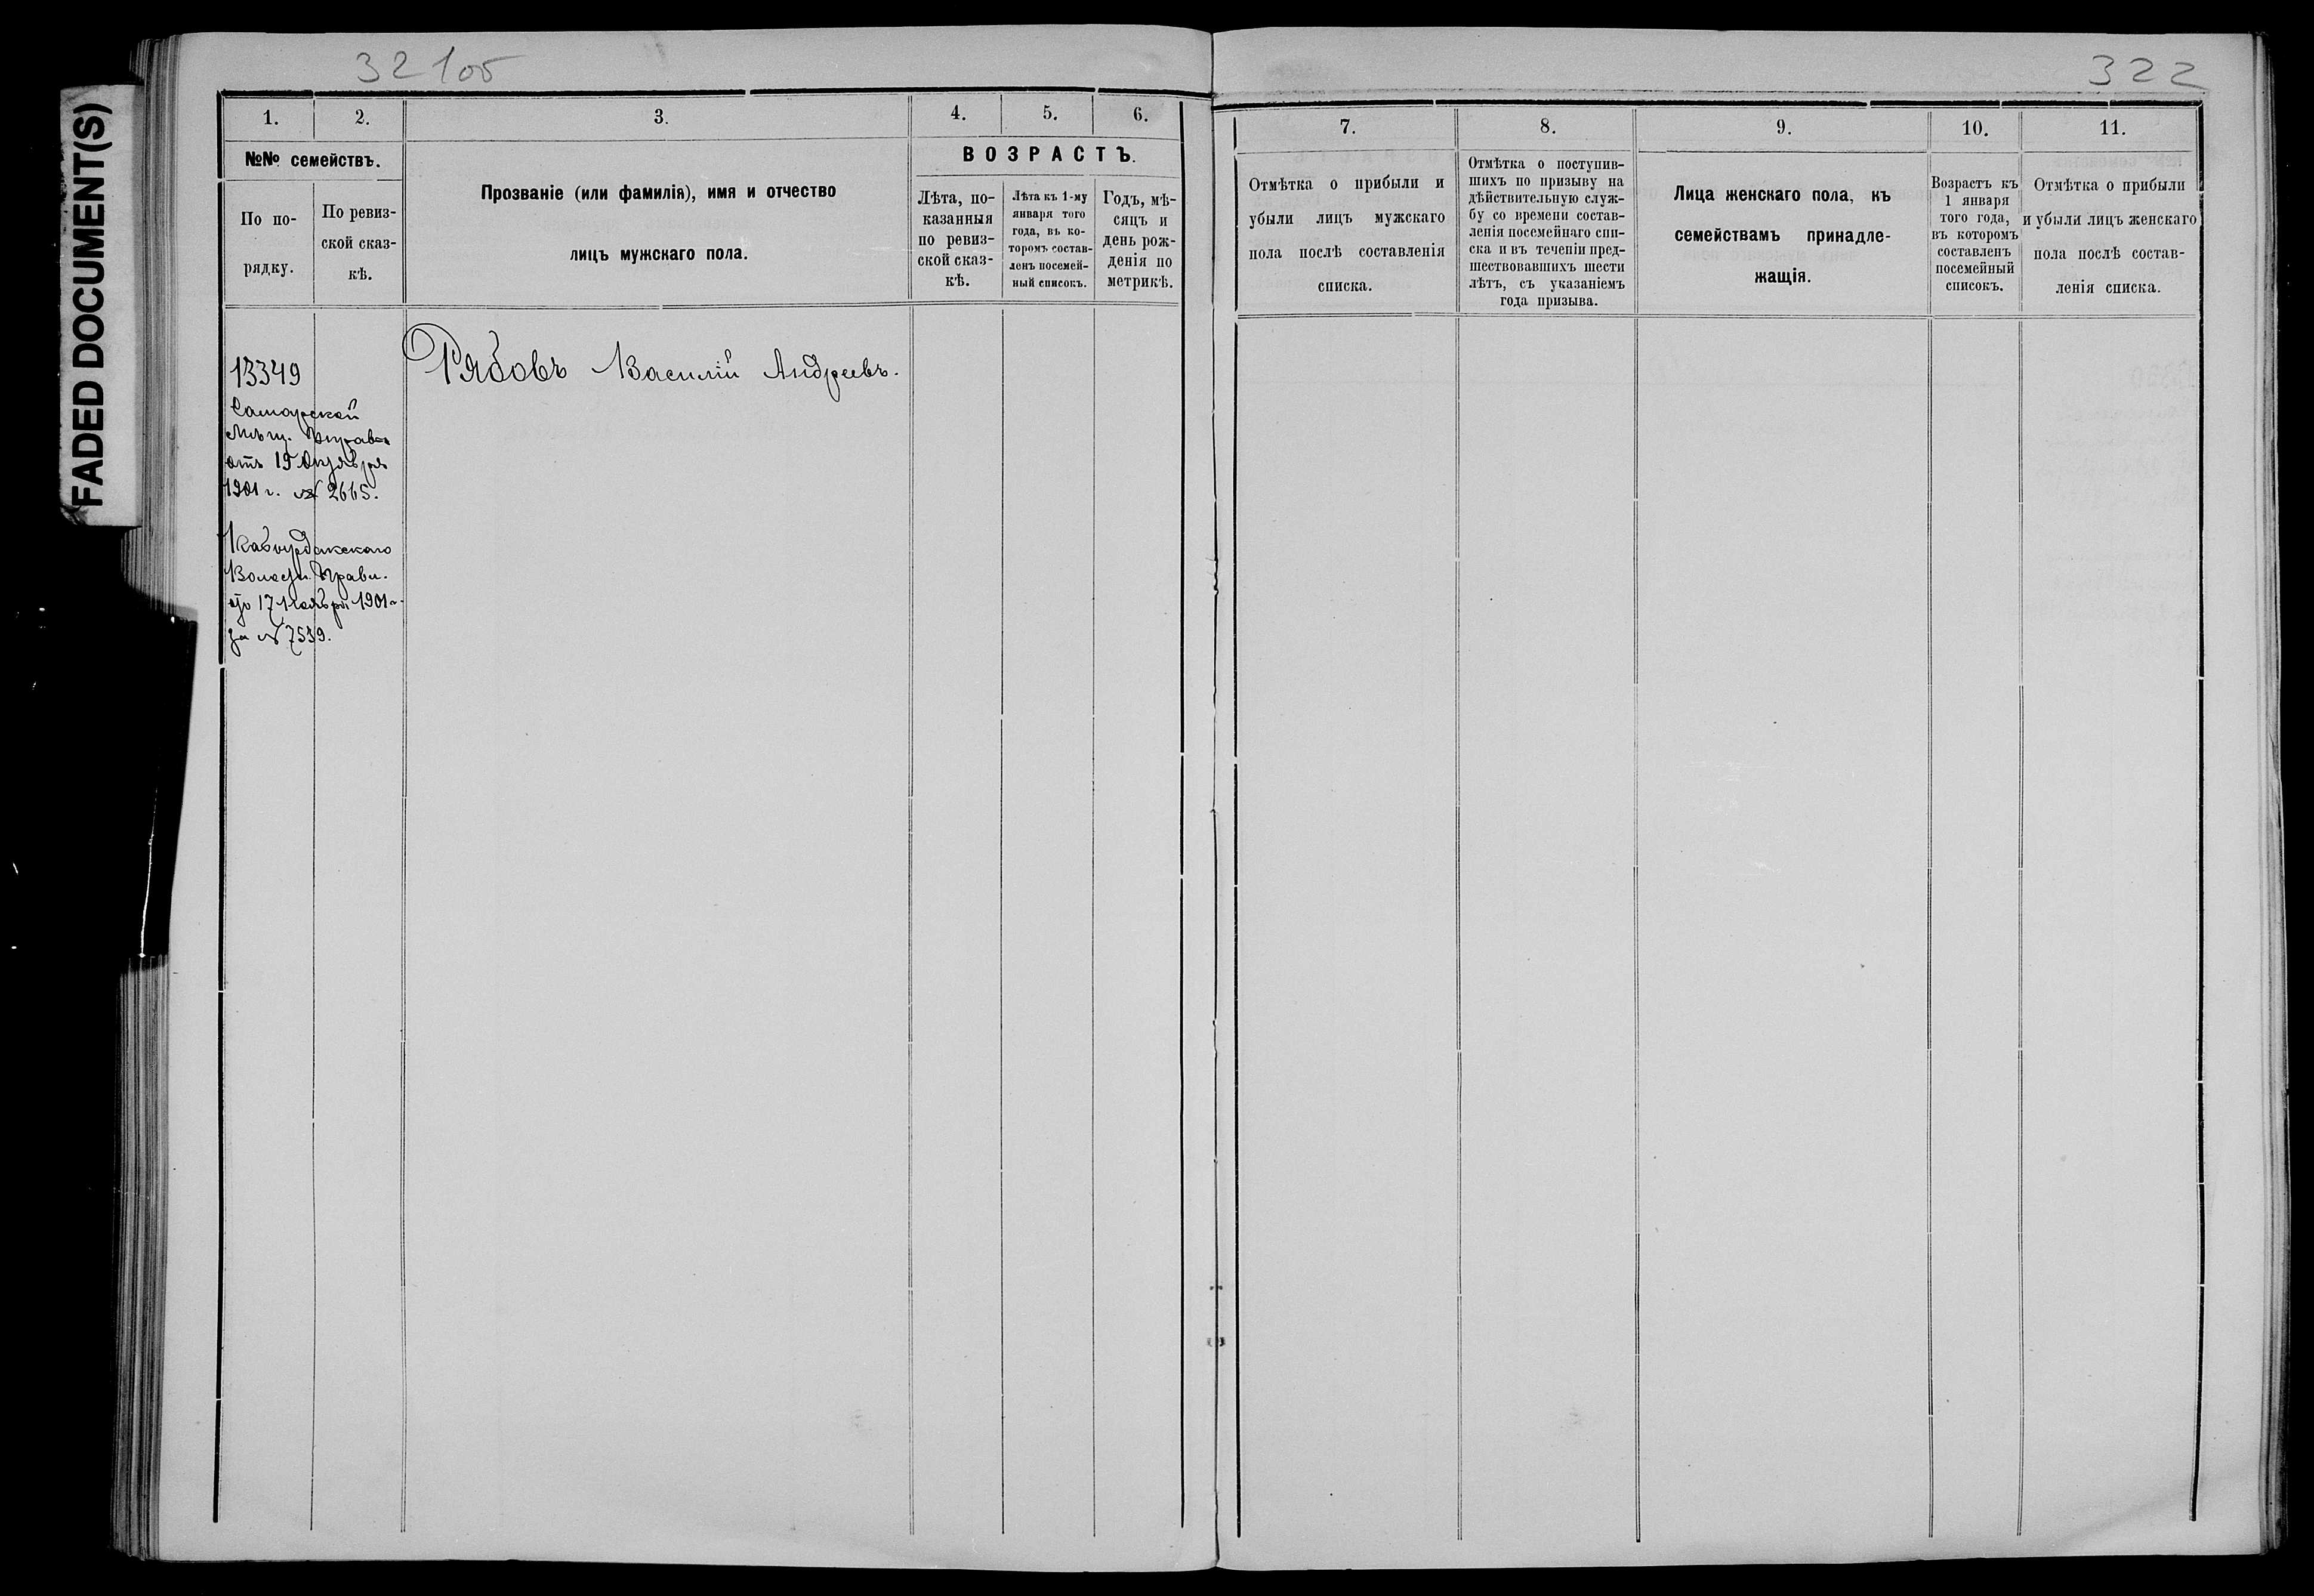 FADED DOCUMENT(S)
321об
322
1. 2. 3. 4. 5. 6.
№№ семействъ.
По по-
рядку.
По ревиз-
ской сказ-
кѣ.
Прозваніе (или фамилія), имя и отчество
лицъ мужскаго пола.
ВОЗРАСТЪ.
Лѣта, по-
казанныя
по ревиз-
ской сказ-
кѣ.
Лѣта къ 1-му
января того
года, въ ко-
торомъ состав-
ленъ посемей-
ный списокъ.
Годъ, мѣ-
сяцъ и
день рож-
денія по
метрикѣ.
13349
Самарской
Мѣщ. Управы
отъ 19 Октября
1901 г. № 2665.
Волостн. Правл.
отъ 17 Ноября 1901 г.
за № 7539.
Рябовъ Василій Андреевъ.
7. 8. 9. 10. 11.
Отмѣтка о прибыли и
убыли лицъ мужскаго
пола послѣ составленія
списка.
Отмѣтка о поступив-
шихъ по призыву на
дѣйствительную служ-
бу со времени состав-
ленія посемейнаго спи-
ска и въ теченіи пред-
шествовавшихъ шести
лѣтъ, съ указаніемъ
года призыва.
Лица женскаго пола, къ
семействамъ принадле-
жащія.
Возрастъ къ
1 января
того года,
въ которомъ
составленъ
посемейный
списокъ.
Отмѣтка о прибыли
и убыли лицъ женскаго
пола послѣ состав-
ленія списка.